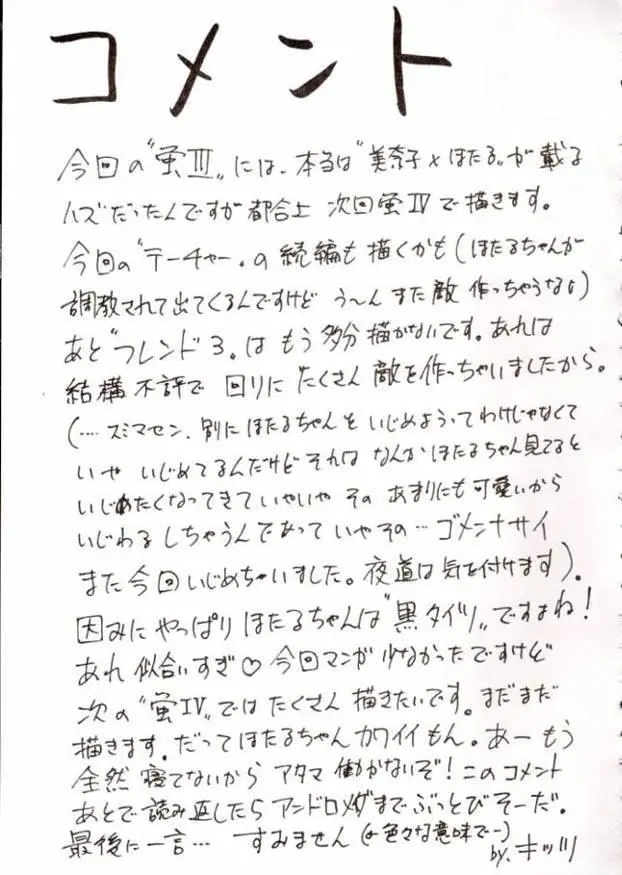 コメント
今回の〝蛍III〟には、本当は〝美奈子×ほたる〟が載る
ハズだったんですが都合上 次回蛍IVで描きます。
今回の〝テーチャー〟の続編も描くかも(ほたるちゃんが
調教されて出てくるんですけど う〜んまた敵 作っちゃうな)
あと〝フレンド3〟はもう多分描かないです。あれは
結構不評で 回りに たくさん敵を作っちゃいましたから。
(…スミマセン、別にほたるちゃんを いじめようってわけじゃなくて
いや いじめてるんだけどそれは なんかほたるちゃん見てると
いじめたくなってきていやいや その あまりにも可愛いから
いじわるしちゃうんであって いやその…ゴメンナサイ
また今回いじめちゃいました。夜道は気を付けます)。
因みにやっぱり ほたるちゃんは〝黒タイツ〟ですよね!
あれ似合いすぎ♡今回マンガ少なかったですけど
次の〝蛍IV〟ではたくさん描きたいです。まだまだ
描きます。だってほたるちゃんカワイイもん。あーもう
全然寝てないから アタマ働かないぞ!このコメント
あとで読み返したらアンドロメダまでぶっとびそーだ。
最後に一言… すみません(←色々な意味でー)
by.キッツ